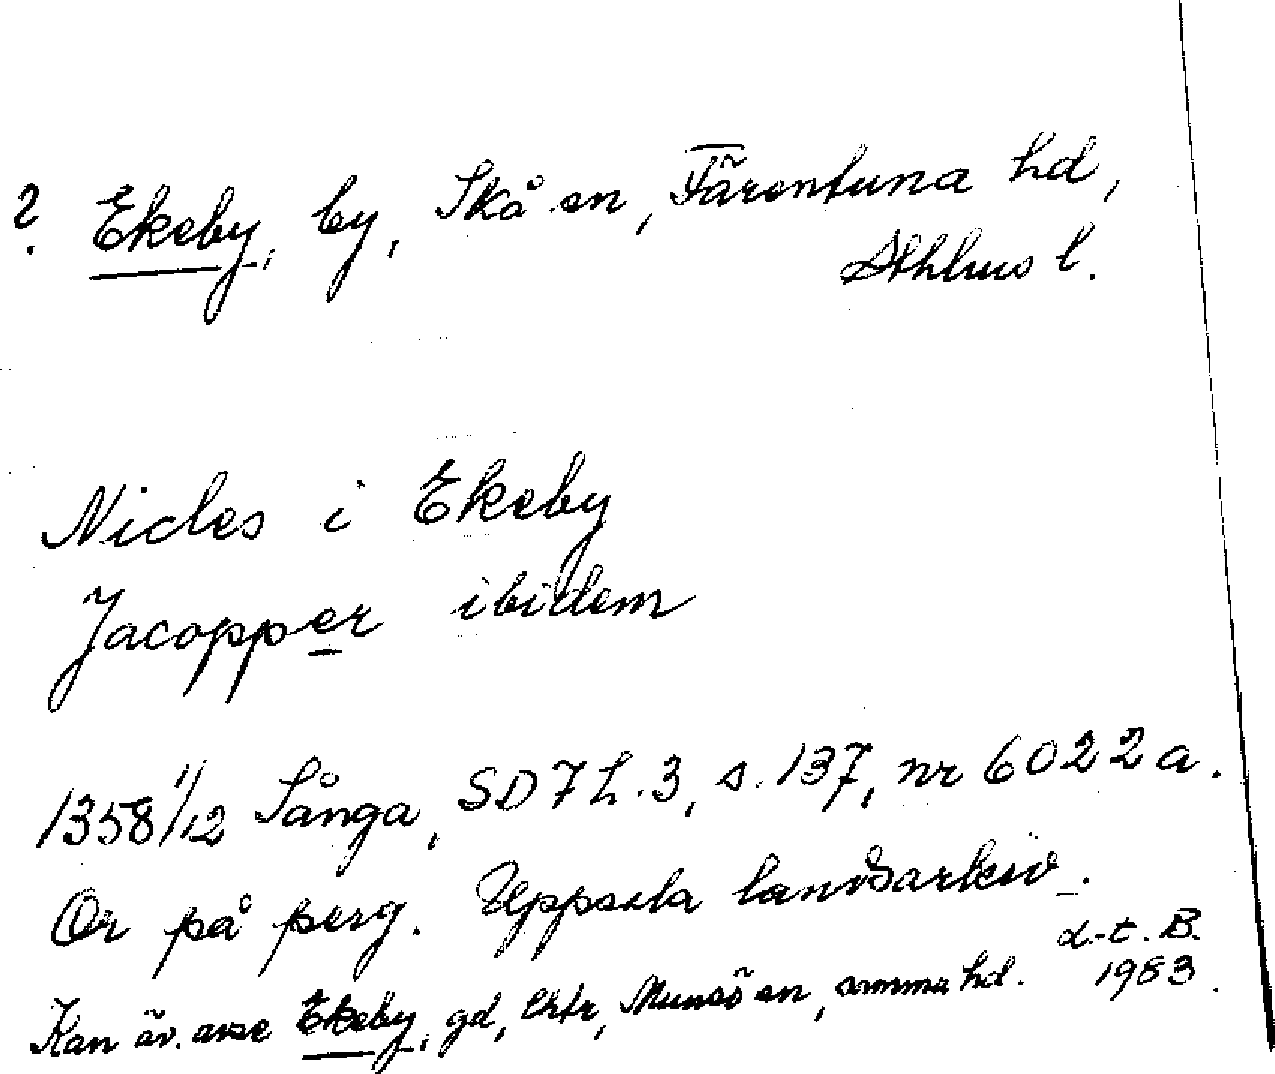 ? Ekeby, by, Skå sn, Färentuna hd,
Sthlms l.
Nicles i Ekeby
Jacopper ibidem
1358 1/12 Sånga, SD 7 h.3, s.137, nr 6022 a.
Or på perg. Uppsala landsarkiv.
d-t. B.
1983.
Kan äv. avse Ekeby, gd, Munsö sn, samma hd.